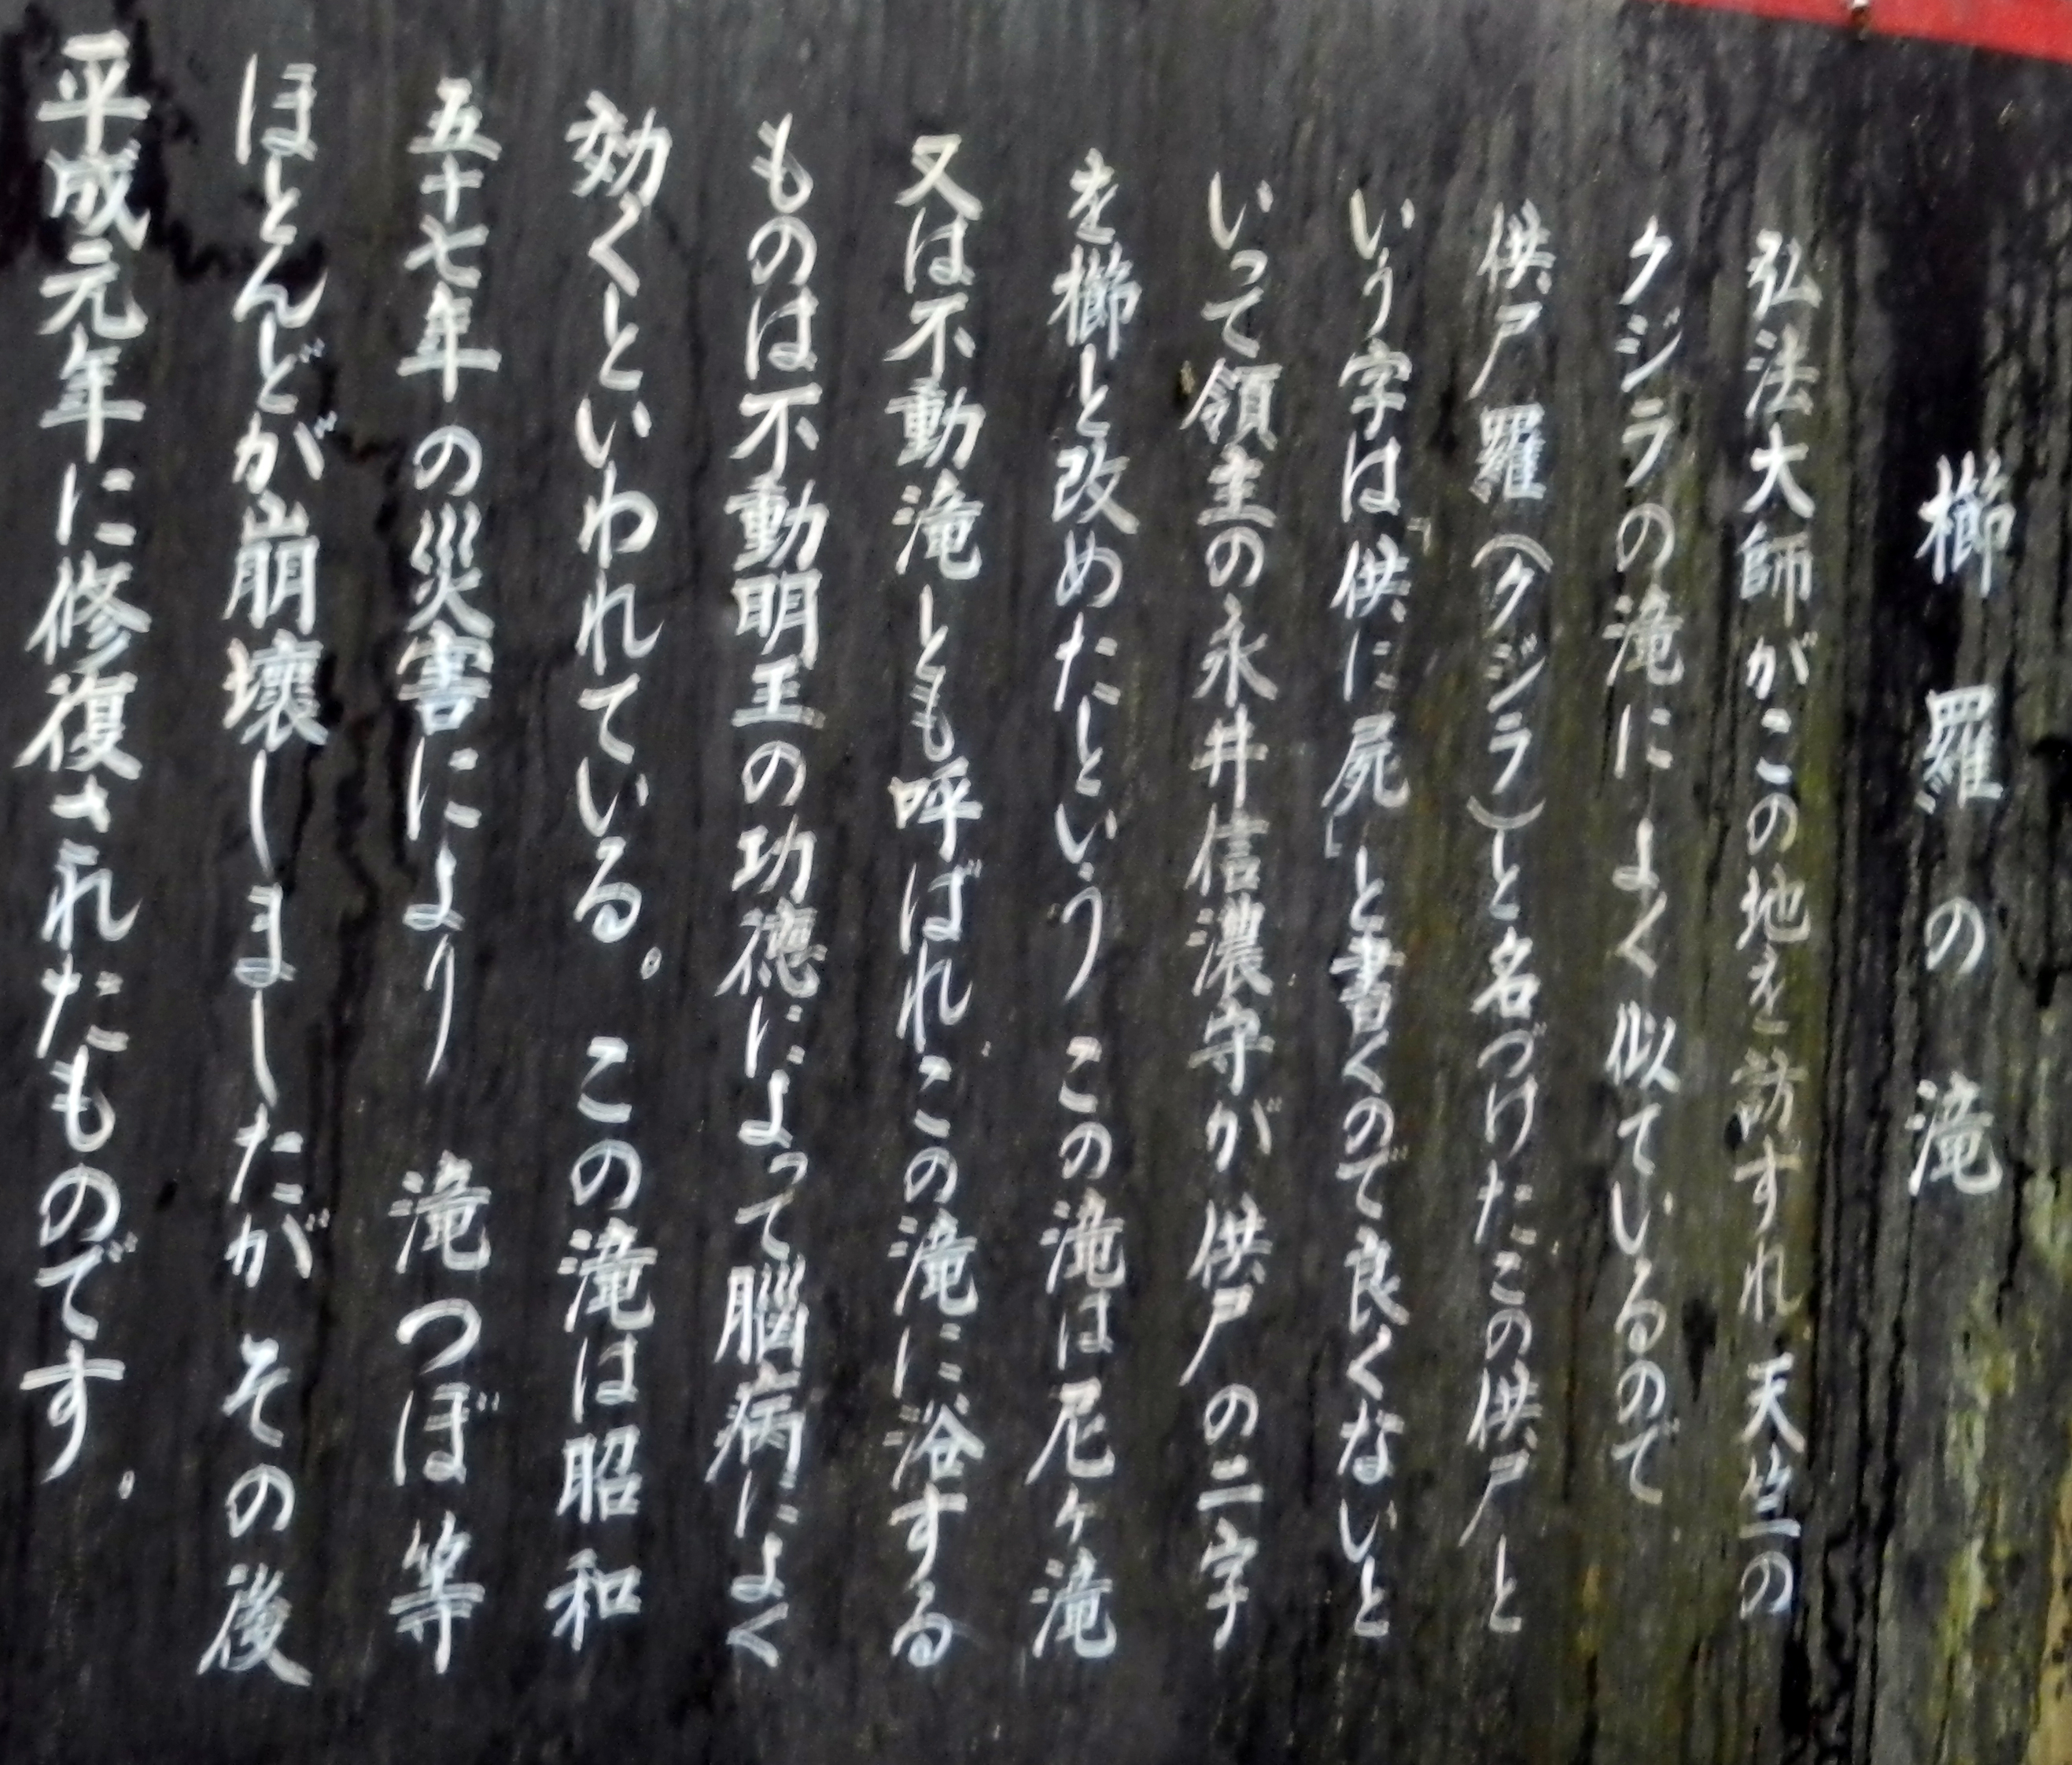 櫛羅の滝
弘法大師がこの地を訪ずれ 天竺の
クジラの滝によく似ているので
供尸羅(クジラ)と名づけたこの供尸と
いう字は「供に屍」と書くので良くないと
いって領主の永井信濃守が供尸の二字
を櫛と改めたという この滝は尼ヶ滝
又は不動滝とも呼ばれこの滝に浴する
ものは不動明王の功徳によって脳病によく
効くといわれている。この滝は昭和
五十七年の災害により 滝つぼ等
ほとんどが崩壊しましたが その後
平成元年に修復されたものです。